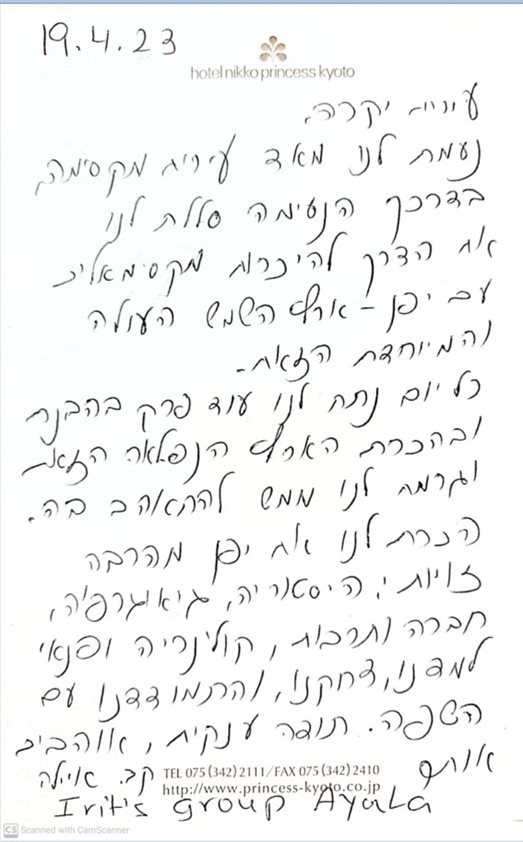 19.4.23
hotel nikko princess kyoto
עירית יקרה,
נעמת לנו מאד עירית מקסימה,
בדרכך הנעימה סללת לנו
את הדרך להיכרות מקסימאלית
עם יפן – ארץ השמש העולה
והמיוחדת הזאת.
כל יום נתח לנו עוד פרק בהבנת
ובהכרת הארץ הנפלאה הזאת
וגרמת לנו ממש להתאהב בה.
הכרת לנו את יפן מהרבה
זויות: היסטוריה, גיאוגרפיה,
חברה ותרבות, קולינריה ופנאי
למדנו, צחקנו, והתמודדנו עם
השפה. תודה ענקית, אוהבים
אותך
קב. איילה
TEL 075 (342) 2111 / FAX 075 (342) 2410
http://www.princess-kyoto.co.jp
Irit's group Ayala
CS Scanned with CamScanner